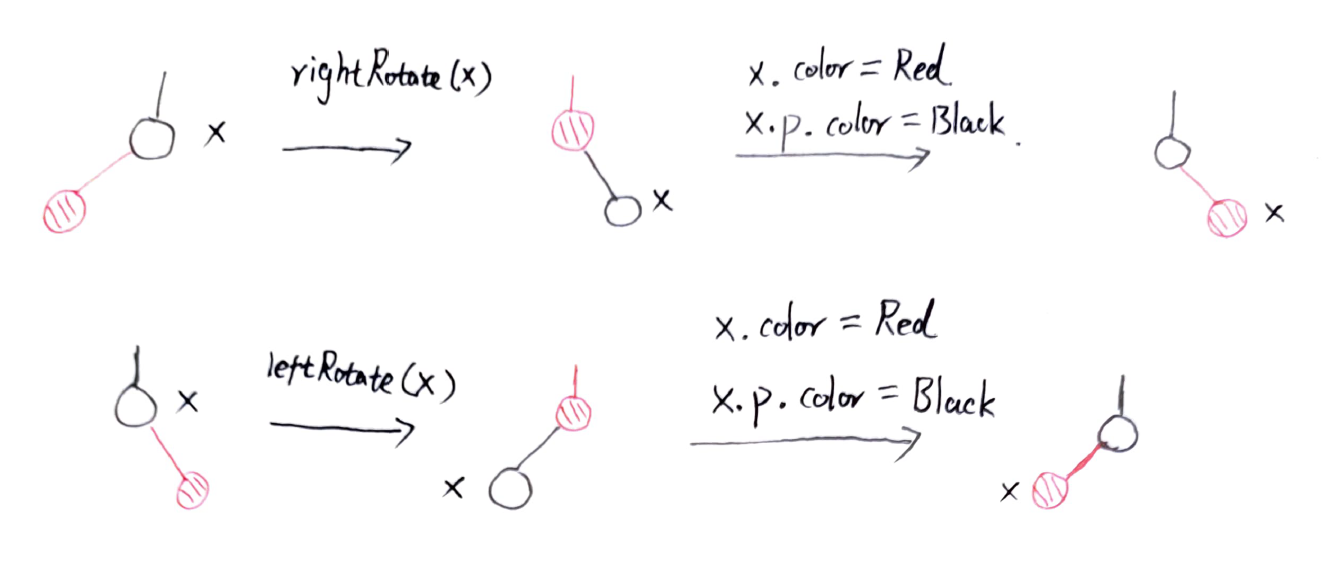 rightRotate(x)
x. color = Red
x.p. color = Black.
x
x
x
leftRotate(x)
x. color = Red
x.p. color = Black
x
x
x